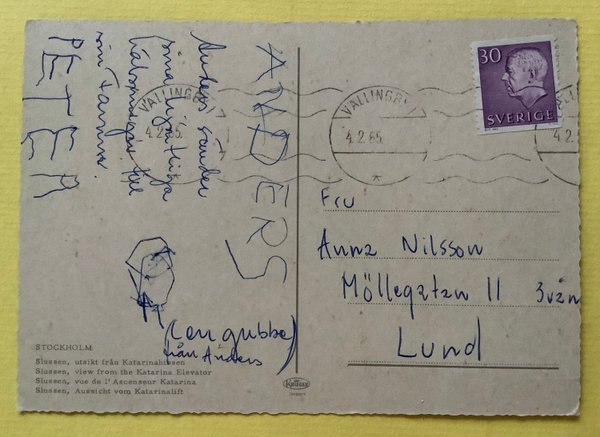 ANDERS
Anders sänder
sina hjärtliga
hälsningar till
sin farmor.
PETER
(en gubbe)
från Anders
STOCKHOLM
Slussen, utsikt från Katarinahissen
Slussen, view from the Katarina Elevator
Slussen, vue de l'Ascenseur Katarina
Slussen, Aussicht vom Katarinalift
VÄLLINGBY 7
4.2.65.
VÄLLINGBY
4.2.65.
4.2
30
SVERIGE
Fru
Anna Nilsson
Möllegatan 11 3vån
Lund